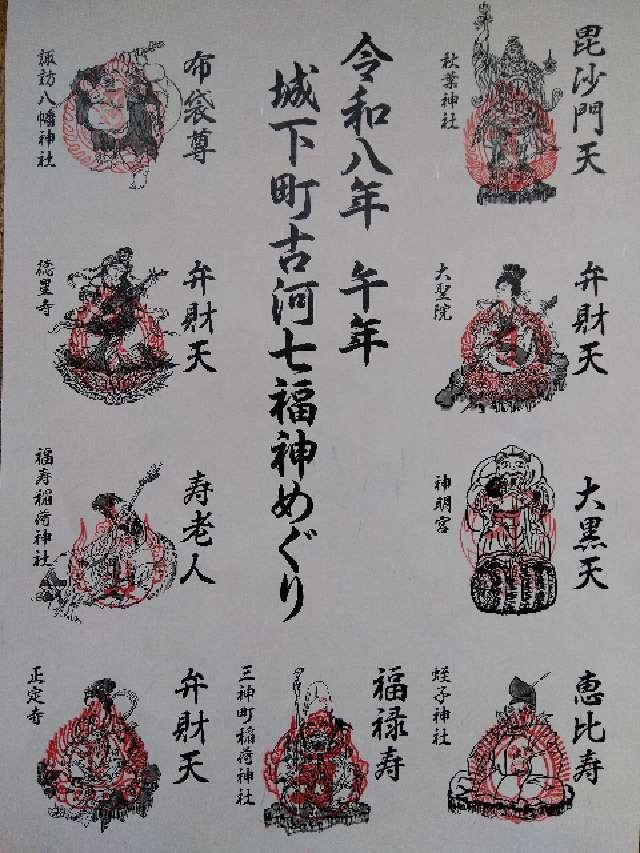 令和八年 午年
城下町古河七福神めぐり
毘沙門天
秋葉神社
弁財天
大聖院
大黒天
神明宮
恵比寿
蛭子神社
福禄寿
三神町稲荷神社
布袋尊
諏訪八幡神社
弁財天
徳星寺
寿老人
福寿稲荷神社
弁財天
正定寺